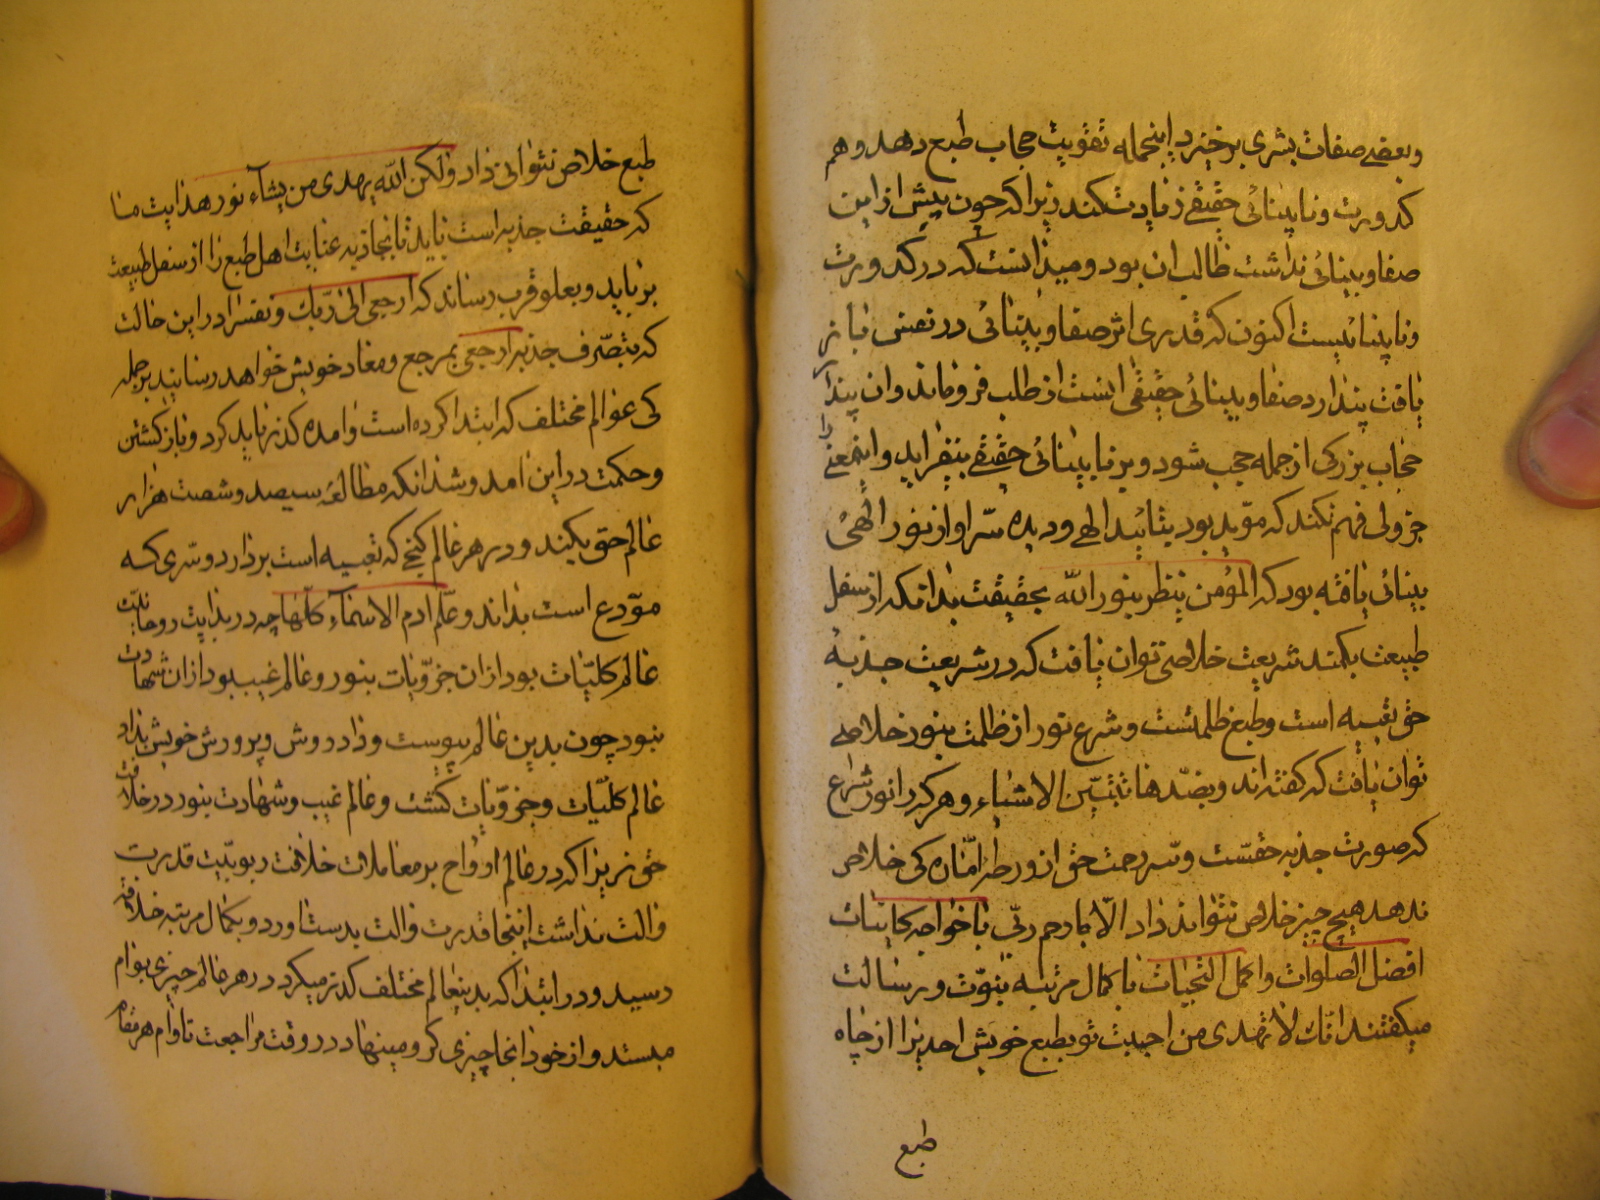 وبعضی صفات بشری برخیزد اینجمله تقویت حجاب طبع دهد و هم
کدورت و نابینائی حقیقی زیادت کند زیرا که چون پیش ازاین
صفا و بینائی نداشت طالب ان بود و میدانست که در کدورت
و نابینائیست اکنون که قدری اثر صفا و بینائی در نفس باز
یافت پندارد صفا و بینائی حقیقی اینست از طلب فروماند وان پندار
حجاب بزرکی از جمله حجب شود و بر نابینائی حقیقی بیفزاید و اینمعنی را
جز ولی فهم نکند که موید بود بتائید الهی و دیده سّر او از نور الهی
بینائی یافته بود که المؤمن ینظر بنور الله بحقیقت بدانکه از سفل
طبیعت بکمند شریعت خلاصی توان یافت که در شریعت جذبهٔ
حق تعبیه است و طبع ظلمتست و شرع نور از ظلمت بنور خلاصی
توان یافت که کفته اند و بضّدها تتبّین الاشیاء و هر که را نور شرع
که صورت جذبه حقّست و سّر رحمت حق از ورطه امّاره کی خلاص
ندهد هیچ چیز خلاص نتواند داد الّا ما رحم ربّی با خواجه کاینات
افضل الصلوات و اکمل التحیات با کمال مرتبه نبوّت و رسالت
میکفتند انّک لا تهدی من احببت تو بطبع خویش احدیرا از چاه
طبع
طبع خلاص نتوانی داد ولکن الله یهدی من یشآء نور هدایت ما
که حقیقت جذبه است بباید تا بجاذبه عنایت اهل طبع را از سفل طبیعت
برباید و بعلو قرب رساند که ارجعی الی ربّک و نفسرا در این حالت
که بتصّرف جذبه ارجعی بمرجع و معاد خویش خواهد رسانید بر جمله
کی عوالم مختلف که ابتدا کرده است و امده کذر باید کرد و باز کشتن
و حکمت در این امد و شد انکه مطالعه سیصد و شصت هزار
عالم حق بکند و در هر عالم کنجی که تعبیه است بردارد و سّری که
مودع است بداند و علّم ادم الاسمآء کلّها چه در بدایت روحانیّت
عالم کلیّات بود ازان جزوّیات بنبود و عالم غیب بود ازان شهادت
نبود چون بدین عالم پیوست و داد روش و پرورش خویش بداد
عالم کلیّات و جزوّیات کشت و عالم غیب و شهادت بنبود در خلافت
حق نریزا که در عالم ارواح بر معاملات خلافت ربوبیّت قدرت
و الت نداشت اینجا قدرت و الت بدست اورد و بکمال مرتبه خلافت
رسید و در ابتدا که بدینعالم مختلف کذر میکرد در هر عالم چیزی بوام
میستد و از خود انجا چیزی کرو مینهاد در وقت مراجعت تا وام هر مقام